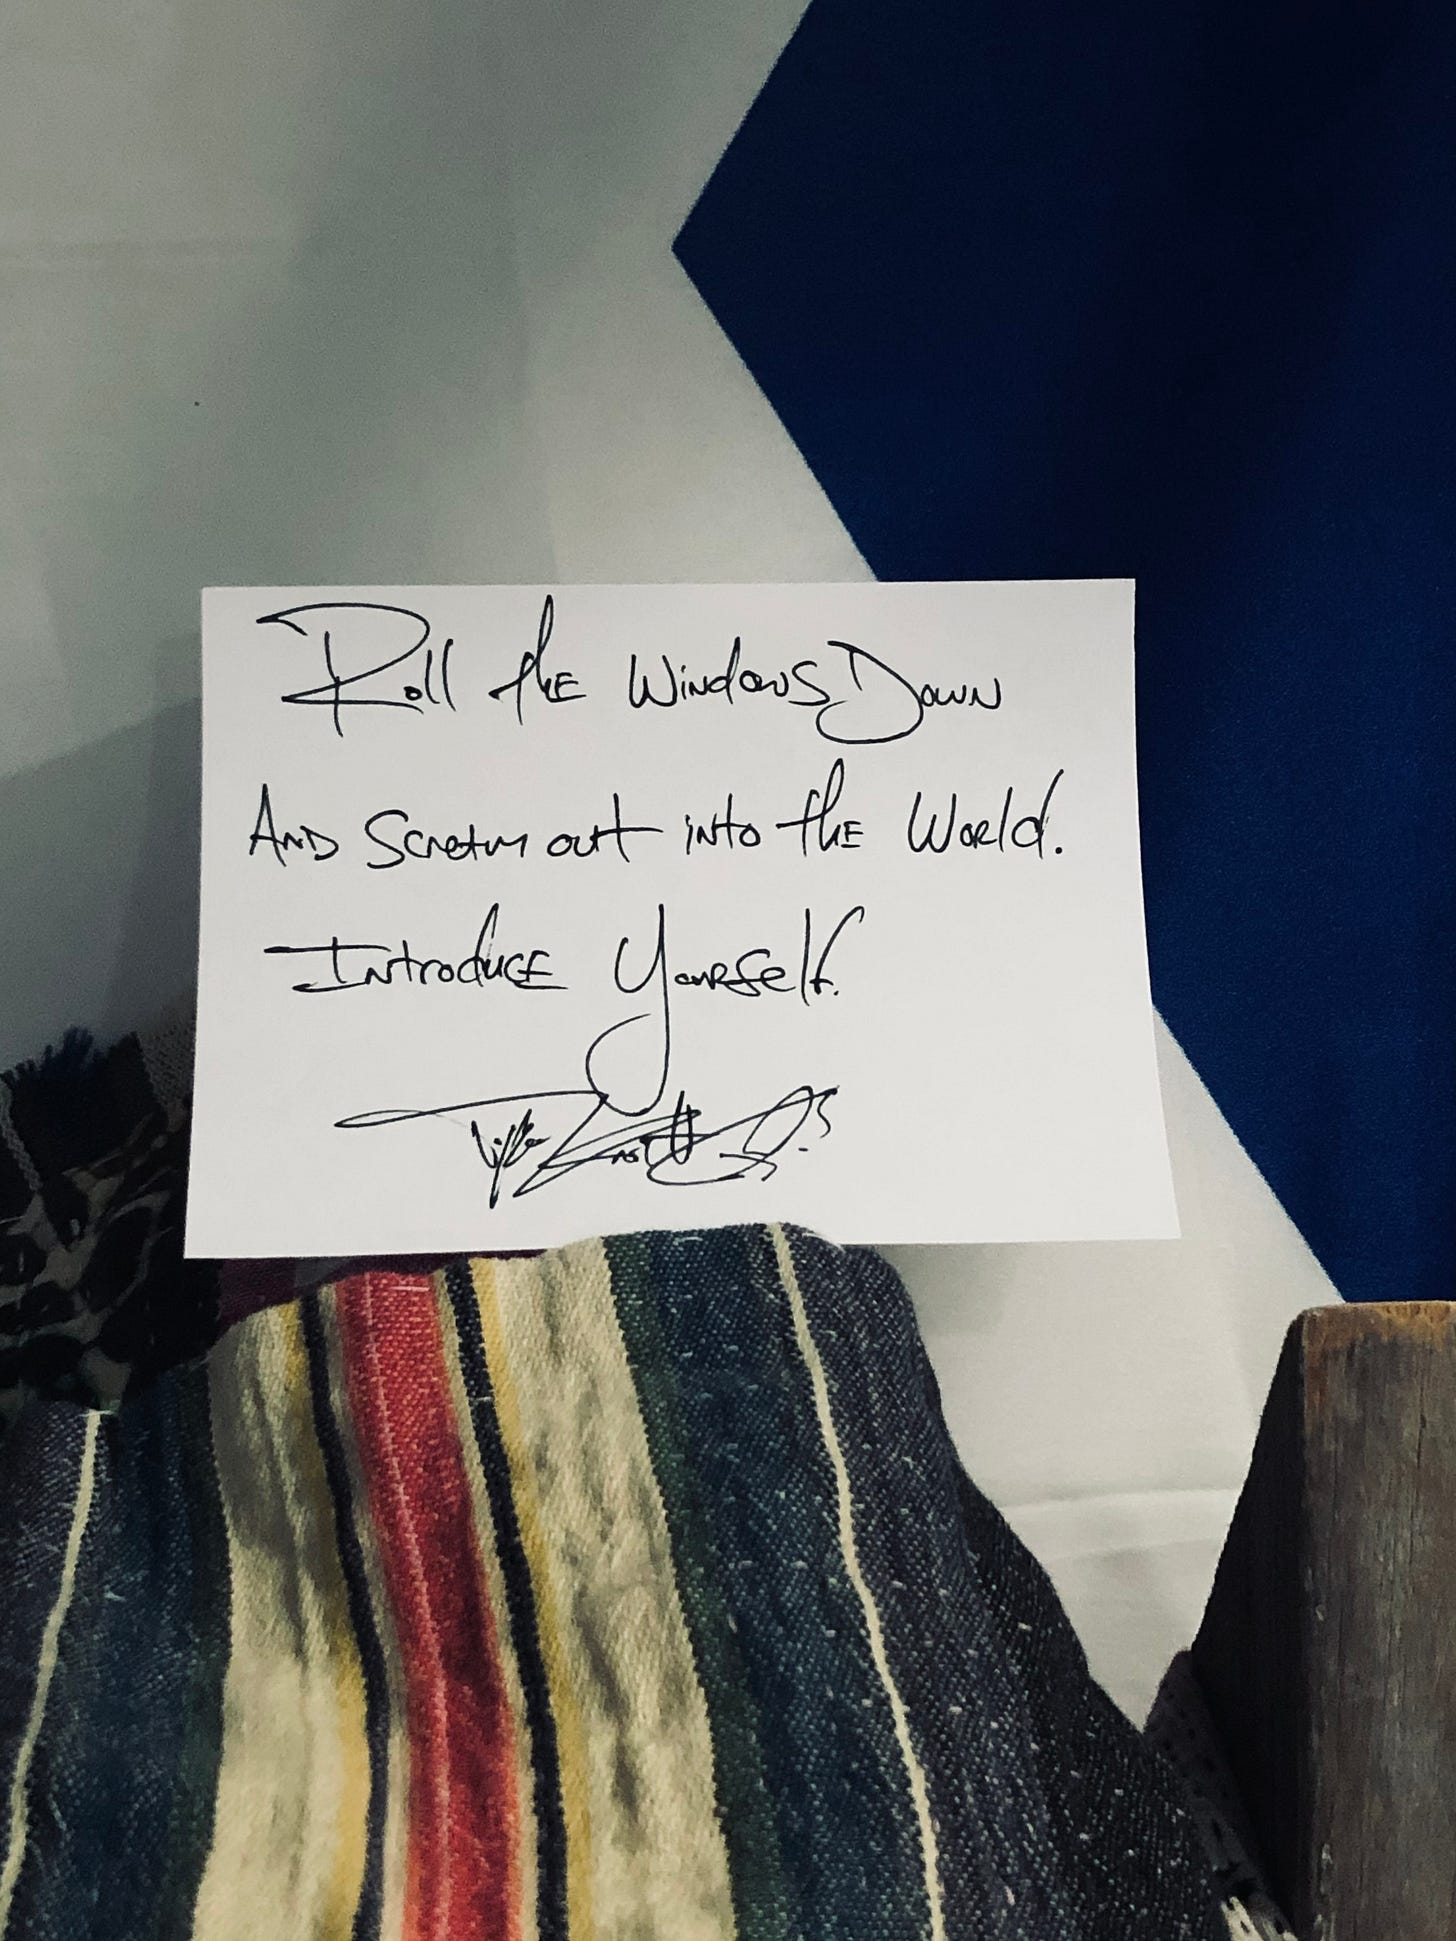 Roll the Windows Down
And Scream out into the World.
Introduce Yourself.
Tyler Knott